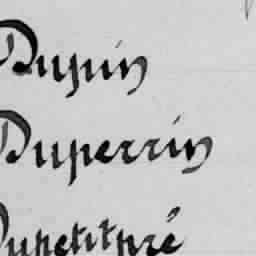 Dupin
Duperrin
Dupetitpré